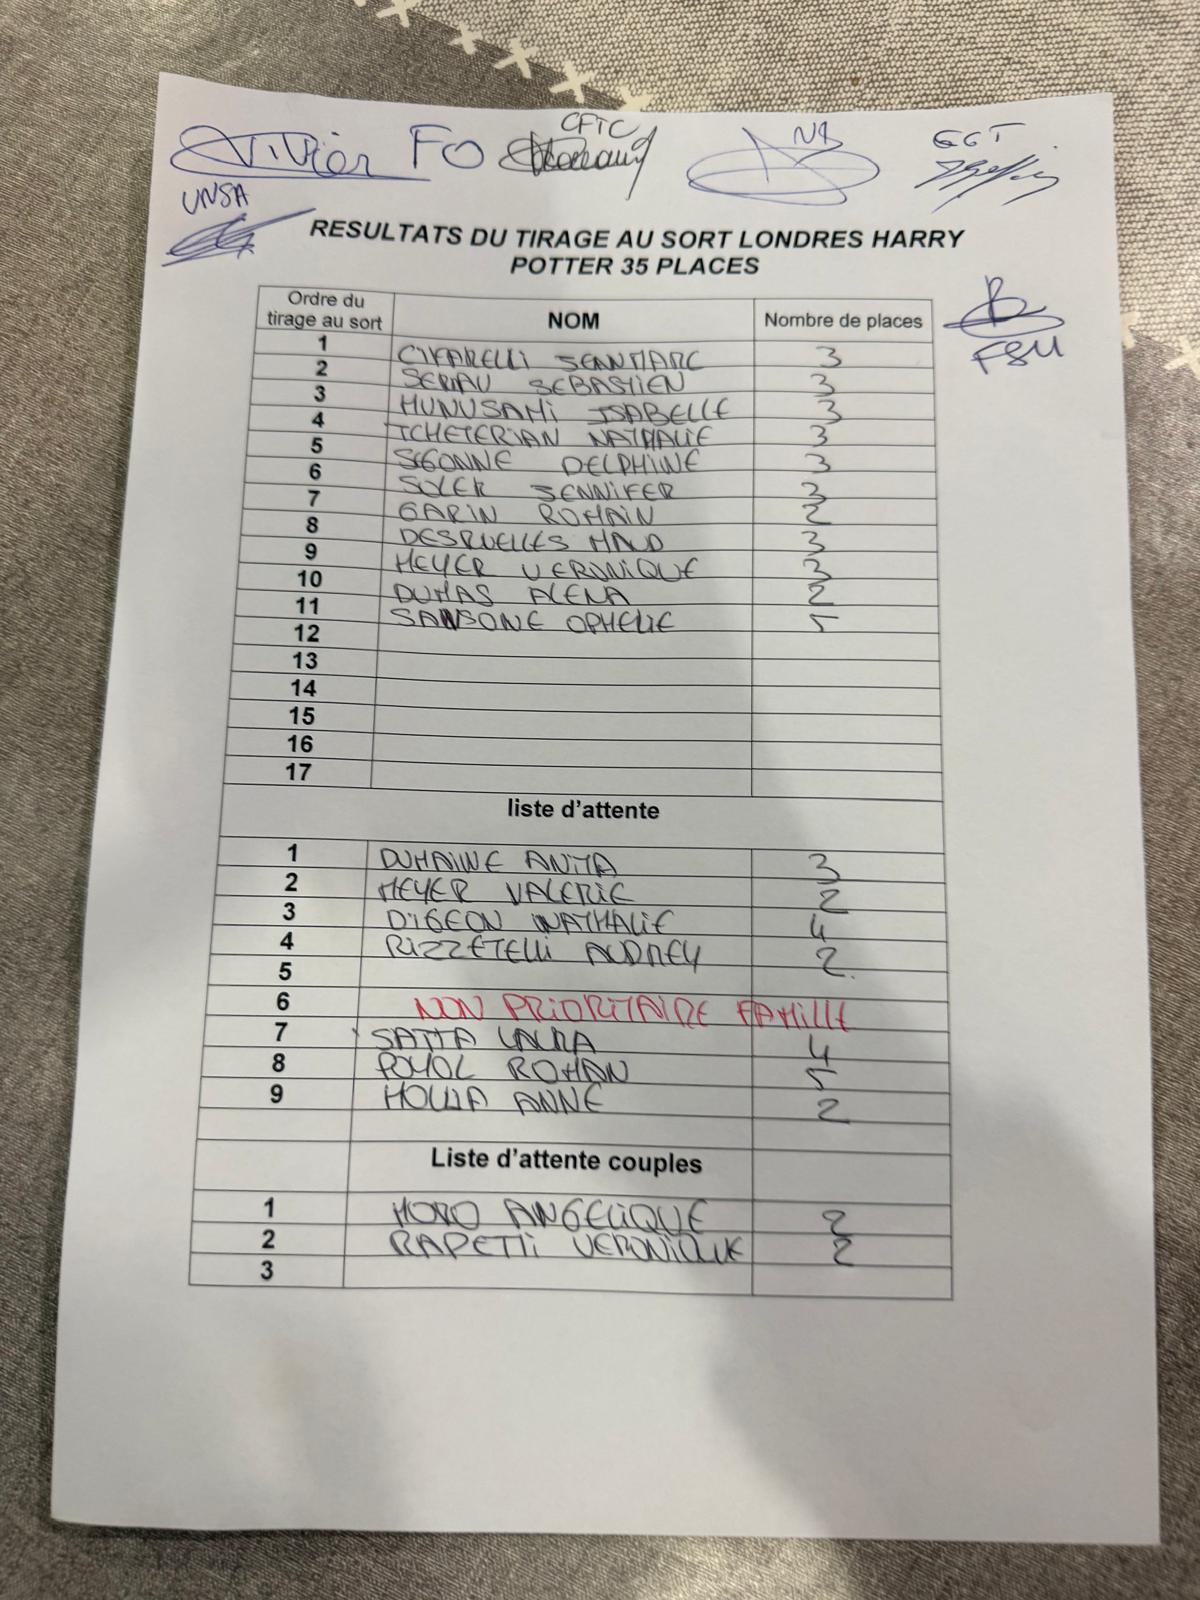 Olivier FO CFTC NB CGT
UNSA
RESULTATS DU TIRAGE AU SORT LONDRES HARRY
POTTER 35 PLACES
FSU
Ordre du tirage au sort NOM Nombre de places
1 CIFARELLI JEANMARC 3
2 SERIAU SEBASTIEN 3
3 MUNUSAMI ISABELLE 3
4 TCHETERIAN NATHALIE 3
5 SEGONNE DELPHINE 3
6 SOLER JENNIFER 3
7 GARIN ROMAIN 2
8 DESRUELLES MAUD 3
9 MEYER VERONIQUE 3
10 DUMAS ALENA 2
11 SANSONE OPHELIE 5
12
13
14
15
16
17
liste d'attente
1 DUHAINE ANITA 3
2 MEYER VALERIE 2
3 DIGEON NATHALIE 4
4 RIZZETELLI AUDREY 2
5
6 NON PRIORITAIRE FAMILLE
7 SATTA LAURA 4
8 POYOL ROMAN 5
9 MOLLIA ANNE 2
Liste d'attente couples
1 MORO ANGELIQUE 2
2 RAPETTI VERONIQUE 2
3